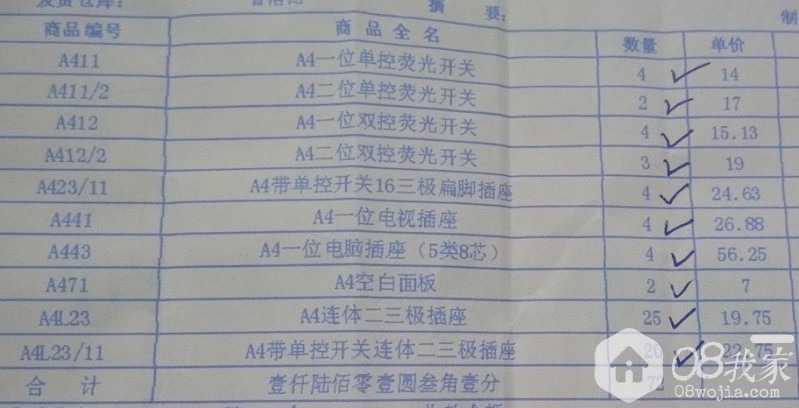 发货仓库： 摘 要： 制
商品编号 商品全名 数量 单价
A411 A4一位单控荧光开关 4 14
A411/2 A4二位单控荧光开关 2 17
A412 A4一位双控荧光开关 4 15.13
A412/2 A4二位双控荧光开关 3 19
A423/11 A4带单控开关16三极扁脚插座 4 24.63
A441 A4一位电视插座 4 26.88
A443 A4一位电脑插座（5类8芯） 4 56.25
A471 A4空白面板 2 7
A4L23 A4连体二三极插座 25 19.75
A4L23/11 A4带单控开关连体二三极插座 20 22.75
合 计 壹仟陆佰零壹圆叁角壹分 72
08我家
08wojia.com